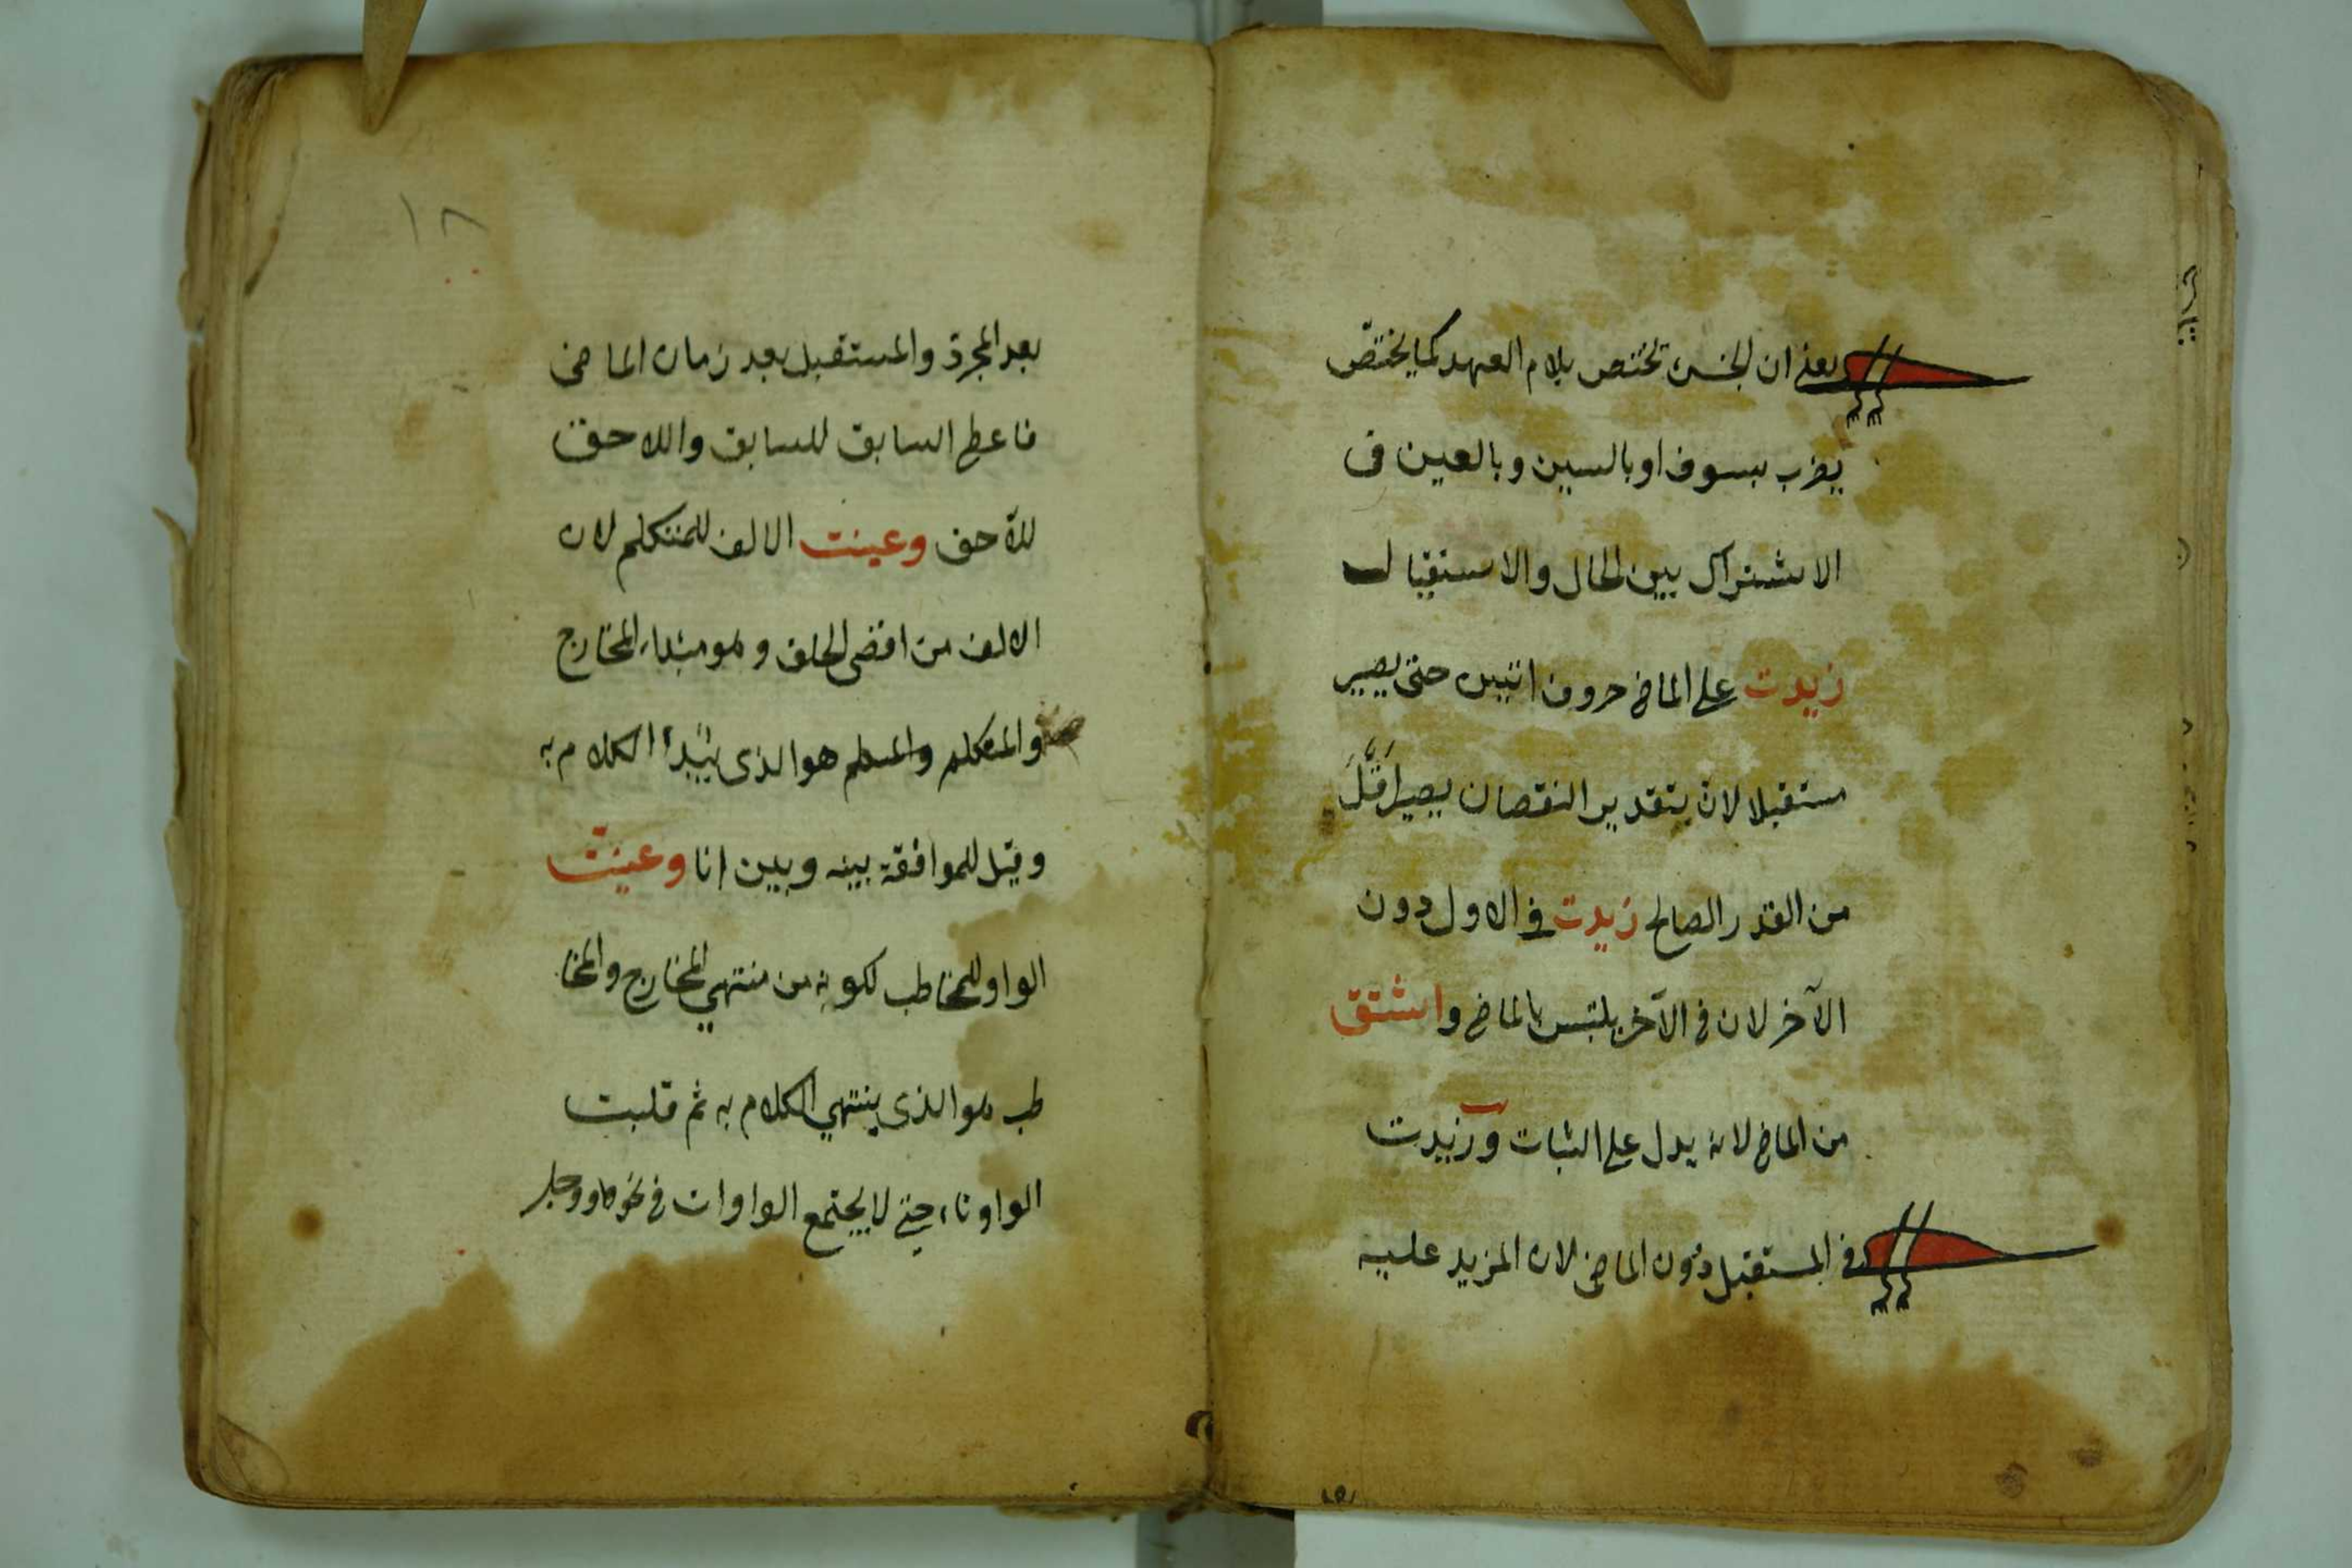 يعني ان الجنس تختص بلام العهد كما يختص
يضرب بسوف او بالسين وبالعين فى
الاشتراك بين الحال والاستقبال
زيدت على الماضي حروف اتين حتى يصير
مستقبلا لان بتقدير النقصان يصير اقل
من القدر الصالح زيدت في الاول دون
الآخر لان في الآخر يلتبس بالماضي واشتق
من الماضي لانه يدل على الثبات وزيدت
في المستقبل دون الماضي لان المزيد عليه
١٨
بعد المجرد والمستقبل بعد زمان الماضى
فاعطى السابق للسابق واللاحق
للآحق وعينت الالف للمتكلم لان
الالف من اقصى الحلق وهو مبتداء المخارج
والمتكلم هو الذى يبتدأ الكلام به
وقيل للموافقة بينه وبين انا وعينت
الواو للمخاطب لكونه من منتهي المخارج والمخا
طب هو الذى ينتهي الكلام به ثم قلبت
الواو تاء حتى لا يجتمع الواوات فى نحو ووجل